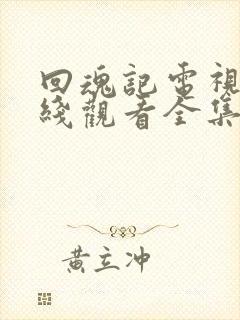 回魂記電視
綫觀看全集
黃立冲